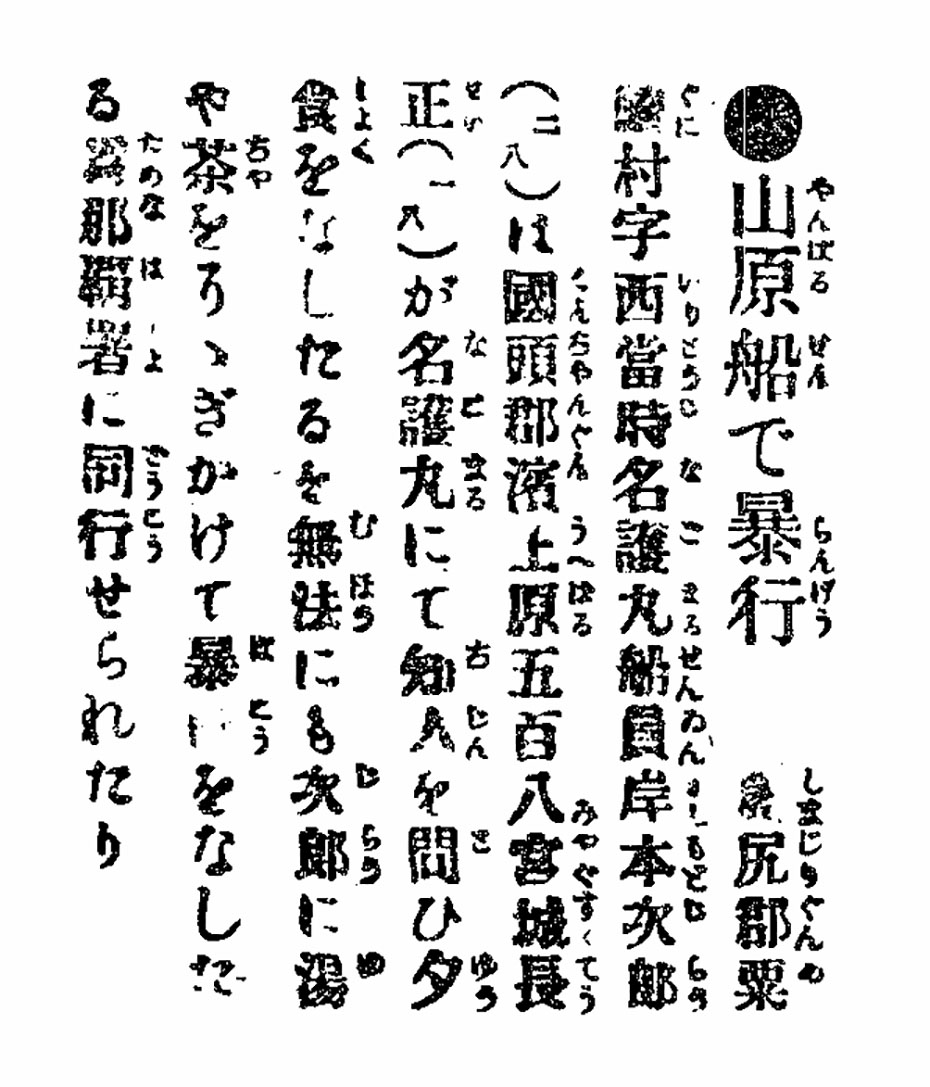 ●山原船で暴行　島尻郡粟
國村字西當時名護丸船員岸本次郎
(二八)は國頭郡濱上原五百八宮城長
正(一八)が名護丸にて知人を問ひ夕
食をなしたるを無法にも次郎に湯
や茶をりゝぎがけて暴をなした
る爲那覇署に同行せられたり